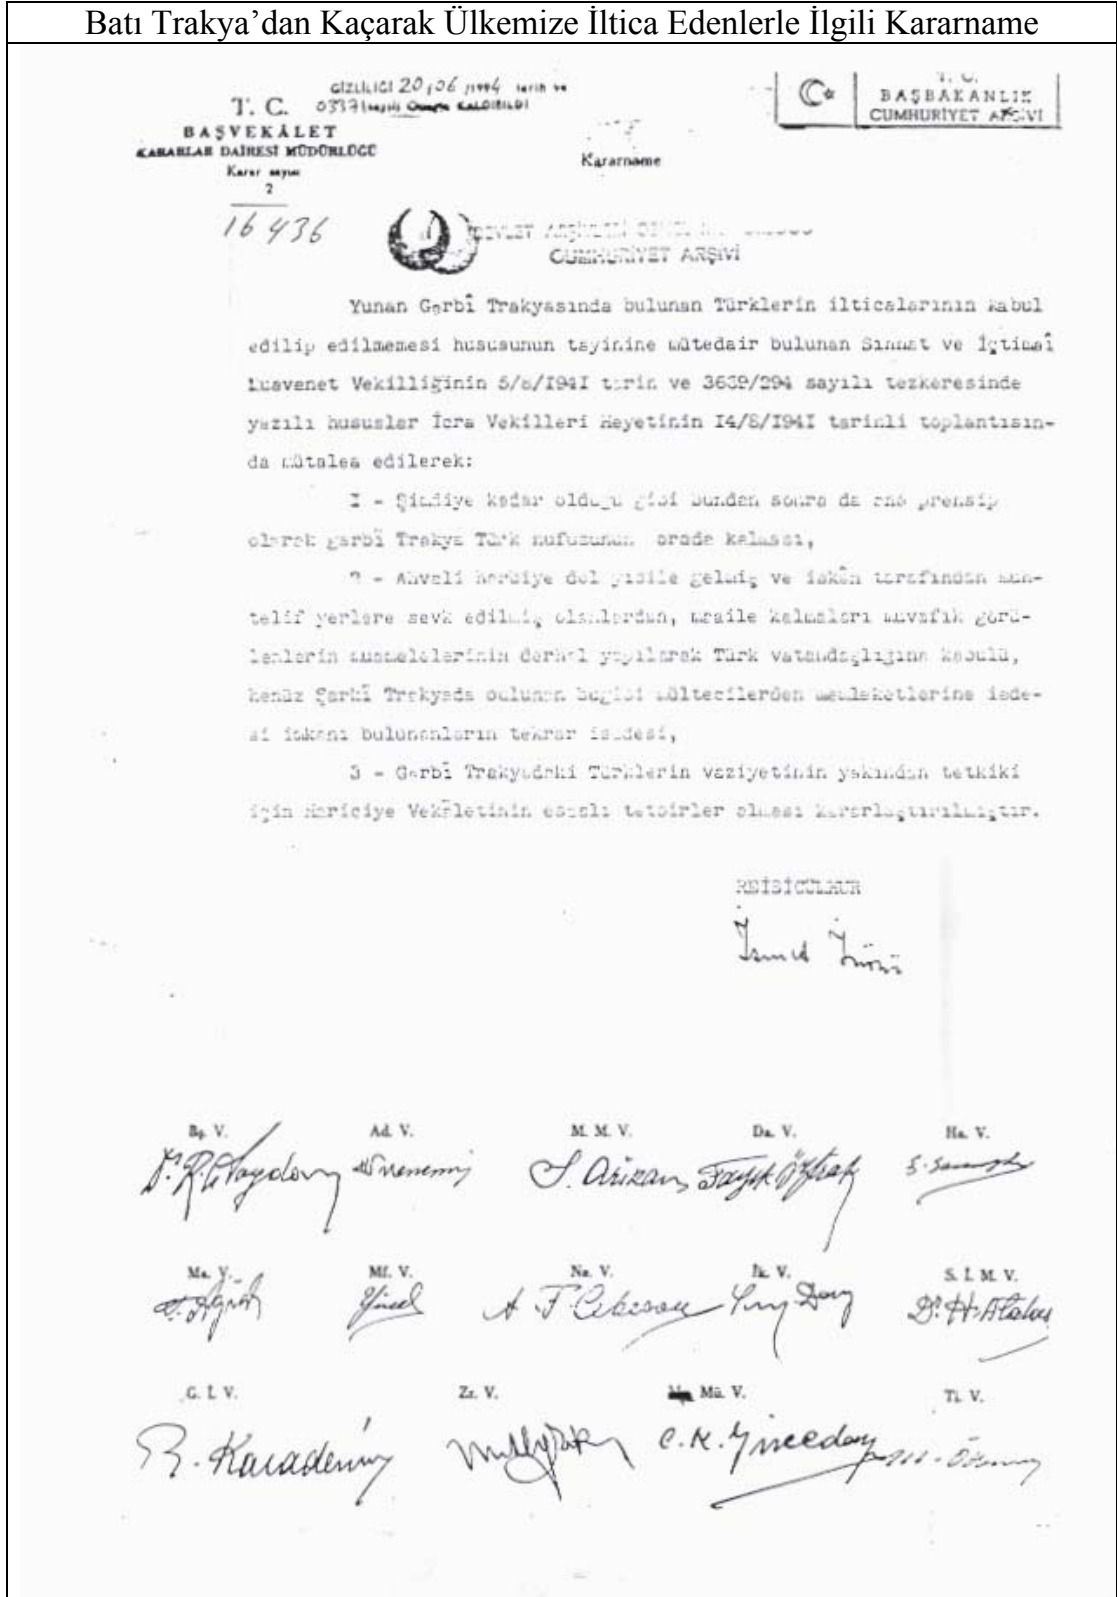 Batı Trakya’dan Kaçarak Ülkemize İltica Edenlerle İlgili Kararname
GİZLİLİĞİ 20/06/1994 tarih ve
0337 sayılı KALDIRILDI
T. C.
BAŞVEKÂLET
KARARLAR DAİRESİ MÜDÜRLÜĞÜ
Karar sayısı
2
16436
T. C.
BAŞBAKANLIK
CUMHURİYET ARŞİVİ
Kararname
DEVLET ARŞİVLERİ GENEL
CUMHURİYET ARŞİVİ
Yunan Garbî Trakyasında bulunan Türklerin ilticalarının kabul
edilip edilmemesi hususunun tayinine mütedair bulunan Sıhhat ve İçtimaî
Muavenet Vekilliğinin 5/8/I94I tarih ve 3639/294 sayılı tezkeresinde
yazılı hususlar İcra Vekilleri Heyetinin I4/8/I94I tarihli toplantısın-
da mütalea edilerek:
I - Şimdiye kadar olduğu gibi bundan sonra da ana prensip
olarak garbî Trakya Türk nufuzunun orada kalması,
2 - Ahvali harbiye dolayısile gelmiş ve iskân tarafından muh-
telif yerlere sevk edilmiş olanlardan, maaile kalmaları muvafık görü-
lenlerin muamelelerinin derhal yapılarak Türk vatandaşlığına kabulü,
henüz Şarkî Trakyada bulunan bugibi mültecilerden memleketlerine iade-
si imkanı bulunanların tekrar iadesi,
3 - Garbî Trakyadaki Türklerin vaziyetinin yakından tetkiki
için Hariciye Vekâletinin esaslı tetbirler alması kararlaştırılmıştır.
REİSİCÜMHUR
İsmet İnönü
Bş. V. Ad. V. M. M. V. Da. V. Ha. V.
Dr. R. Saydam S. Arıkan Fayık Öztrak
Ma. V. Mf. V. Na. V. İk. V. S. İ. M. V.
Yücel A. F. Cebesoy Dr. H. Alataş
G. İ. V. Zr. V. Mü. V. Ti. V.
R. Karadeniz C. K. İncedayı